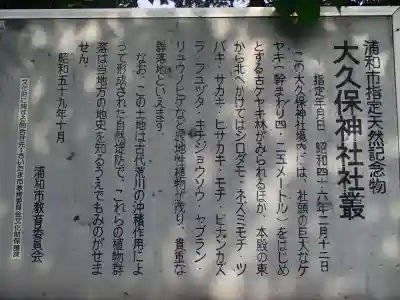 浦和市指定天然記念物
大久保神社社叢
指定年月日 昭和四十六年三月十二日
この大久保神社境内には、社頭の巨大なケ
ヤキ(幹まわり四・二五メートル)をはじめ
とする古ケヤキ林がみられるほか、本殿の東
から北へかけてはシロダモ・ネズミモチ・ツ
バキ・サカキ・ヒサカキ・モチ・ビナンカズ
ラ・フユヅタ・キチジョウソウ・ヤブラン・
リュウノヒゲなど陰地性植物が茂り、貴重な
群落地といえます。
なお、この土地は古代荒川の沖積作用によ
って形成された自然堤防で、これらの植物群
落は当地方の地史を知るうえでもみのがせま
せん。
昭和五十九年十月
浦和市教育委員会
文化財に関する問合せ先:さいたま市教育委員会文化財保護課